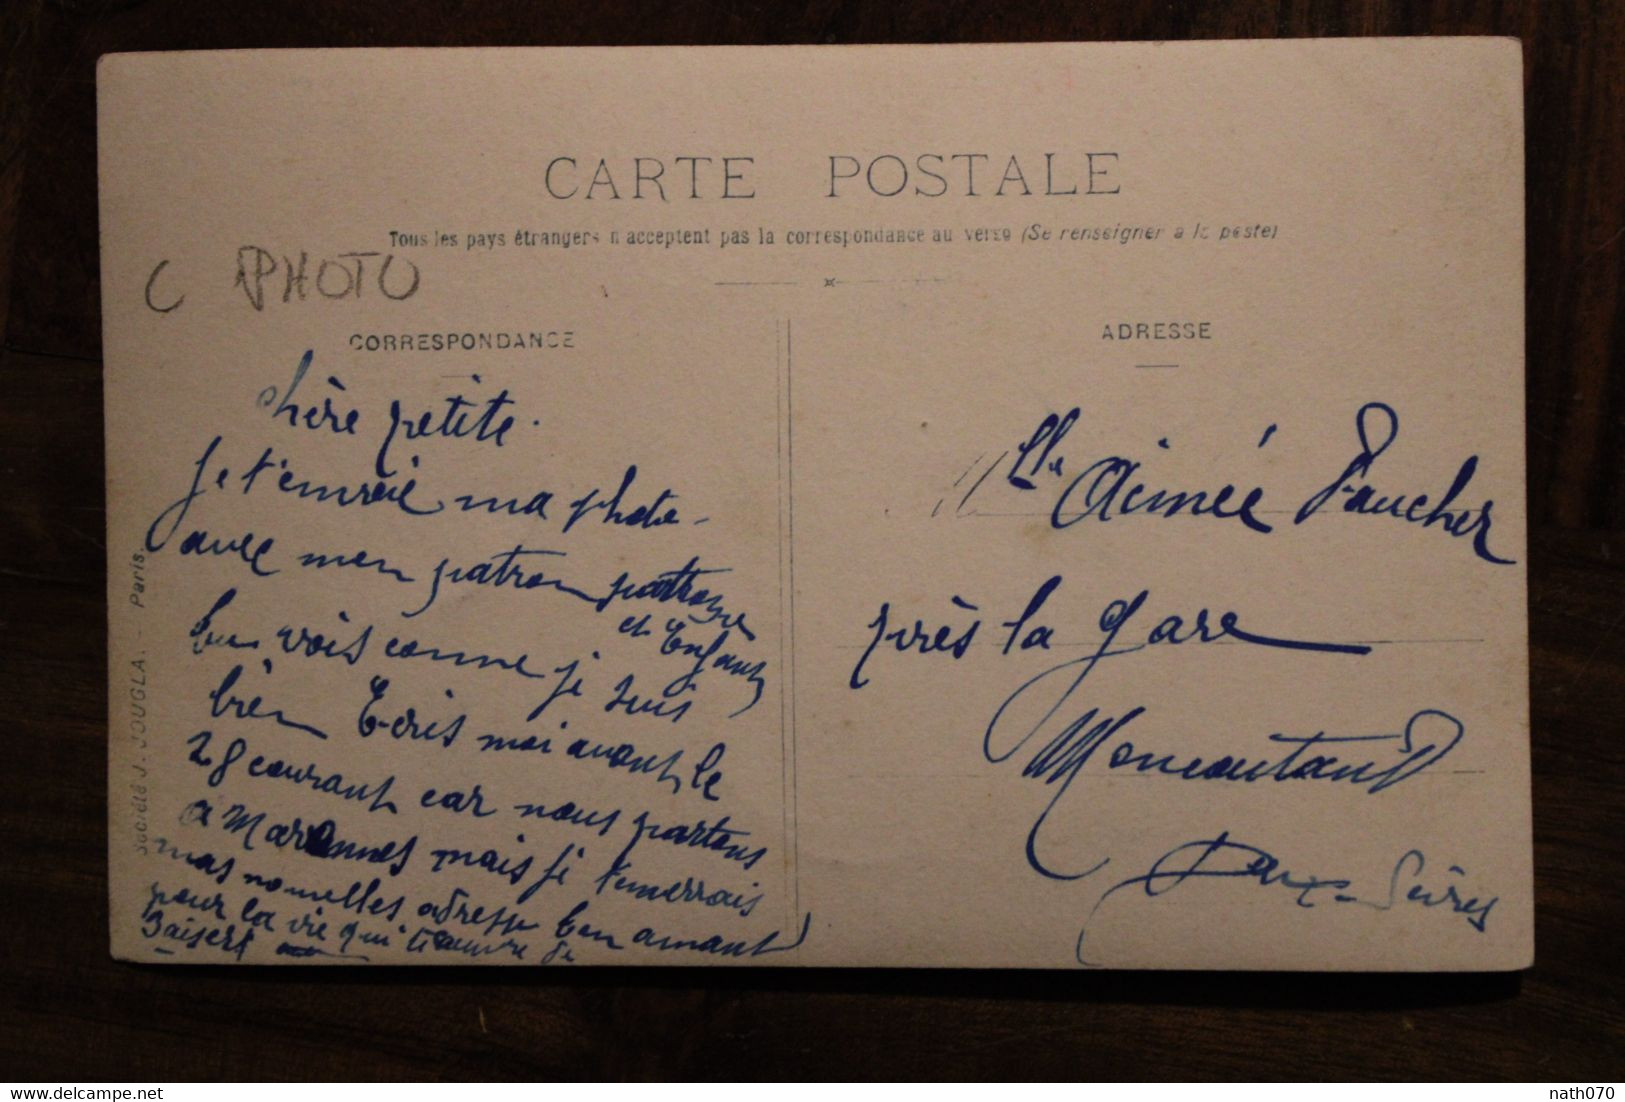 CARTE POSTALE
Tous les pays étrangers n'acceptent pas la correspondance au verso (Se renseigner à la poste)
C PHOTO
CORRESPONDANCE
chère petite.
Je t'envoie ma photo
avec mon patron patronne
et Enfants
tu vois comme je suis
bien Ecris moi avant le
28 courant car nous partons
a Marennes mais je t'enverrais
mas nouvelles adresse ton amant
pour la vie qui t'
Baisers
Société J. JOUGLA. - Paris.
ADRESSE
Mlle Aimée Faucher
près la gare
Moncoutant
Deux-Sèvres
delcampe.net
nath070